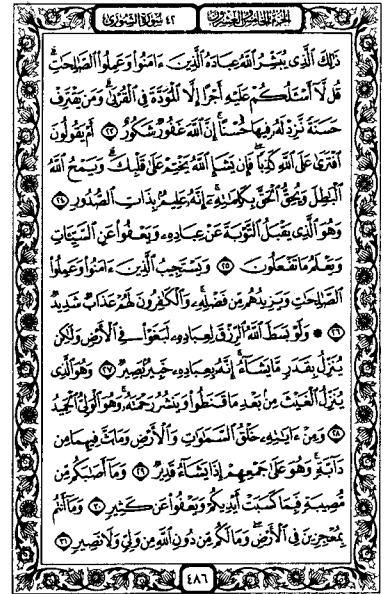 الجزء الخامس والعشرون
٤٢ سورة الشورى
ذَٰلِكَ ٱلَّذِى يُبَشِّرُ ٱللَّهُ عِبَادَهُ ٱلَّذِينَ ءَامَنُوا۟ وَعَمِلُوا۟ ٱلصَّٰلِحَٰتِ ۗ
قُل لَّآ أَسْـَٔلُكُمْ عَلَيْهِ أَجْرًا إِلَّا ٱلْمَوَدَّةَ فِى ٱلْقُرْبَىٰ ۗ وَمَن يَقْتَرِفْ
حَسَنَةً نَّزِدْ لَهُۥ فِيهَا حُسْنًا ۚ إِنَّ ٱللَّهَ غَفُورٌ شَكُورٌ ٢٣ أَمْ يَقُولُونَ
ٱفْتَرَىٰ عَلَى ٱللَّهِ كَذِبًا ۖ فَإِن يَشَإِ ٱللَّهُ يَخْتِمْ عَلَىٰ قَلْبِكَ ۗ وَيَمْحُ ٱللَّهُ
ٱلْبَٰطِلَ وَيُحِقُّ ٱلْحَقَّ بِكَلِمَٰتِهِۦٓ ۚ إِنَّهُۥ عَلِيمٌۢ بِذَاتِ ٱلصُّدُورِ ٢٤
وَهُوَ ٱلَّذِى يَقْبَلُ ٱلتَّوْبَةَ عَنْ عِبَادِهِۦ وَيَعْفُوا۟ عَنِ ٱلسَّيِّـَٔاتِ
وَيَعْلَمُ مَا تَفْعَلُونَ ٢٥ وَيَسْتَجِيبُ ٱلَّذِينَ ءَامَنُوا۟ وَعَمِلُوا۟
ٱلصَّٰلِحَٰتِ وَيَزِيدُهُم مِّن فَضْلِهِۦ ۚ وَٱلْكَٰفِرُونَ لَهُمْ عَذَابٌ شَدِيدٌ
٢٦ ۞ وَلَوْ بَسَطَ ٱللَّهُ ٱلرِّزْقَ لِعِبَادِهِۦ لَبَغَوْا۟ فِى ٱلْأَرْضِ وَلَٰكِن
يُنَزِّلُ بِقَدَرٍ مَّا يَشَآءُ ۚ إِنَّهُۥ بِعِبَادِهِۦ خَبِيرٌۢ بَصِيرٌ ٢٧ وَهُوَ ٱلَّذِى
يُنَزِّلُ ٱلْغَيْثَ مِنۢ بَعْدِ مَا قَنَطُوا۟ وَيَنشُرُ رَحْمَتَهُۥ ۚ وَهُوَ ٱلْوَلِىُّ ٱلْحَمِيدُ
٢٨ وَمِنْ ءَايَٰتِهِۦ خَلْقُ ٱلسَّمَٰوَٰتِ وَٱلْأَرْضِ وَمَا بَثَّ فِيهِمَا مِن
دَآبَّةٍ ۚ وَهُوَ عَلَىٰ جَمْعِهِمْ إِذَا يَشَآءُ قَدِيرٌ ٢٩ وَمَآ أَصَٰبَكُم مِّن
مُّصِيبَةٍ فَبِمَا كَسَبَتْ أَيْدِيكُمْ وَيَعْفُوا۟ عَن كَثِيرٍ ٣٠ وَمَآ أَنتُم
بِمُعْجِزِينَ فِى ٱلْأَرْضِ ۖ وَمَا لَكُم مِّن دُونِ ٱللَّهِ مِن وَلِىٍّ وَلَا نَصِيرٍ ٣١
٤٨٦